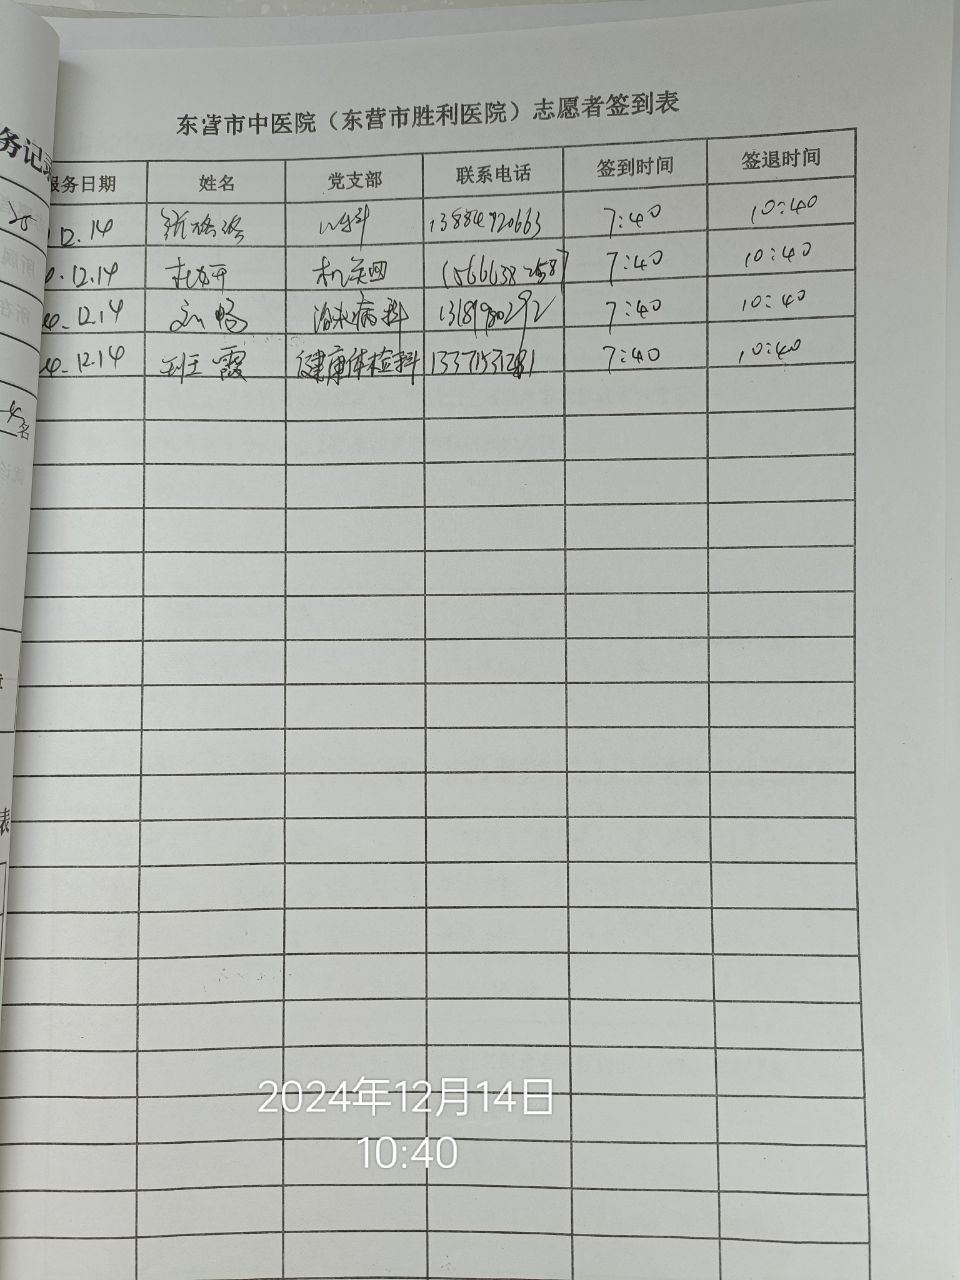 东营市中医院（东营市胜利医院）志愿者签到表
务记录
服务日期 姓名 党支部 联系电话 签到时间 签退时间
12.14 儿科 13884920663 7:40 10:40
12.14 机关四 7:40 10:40
12.14 刘畅 泌尿病科 13181980292 7:40 10:40
12.14 班霞 健康体检科 7:40 10:40
4名
表
2024年12月14日
10:40